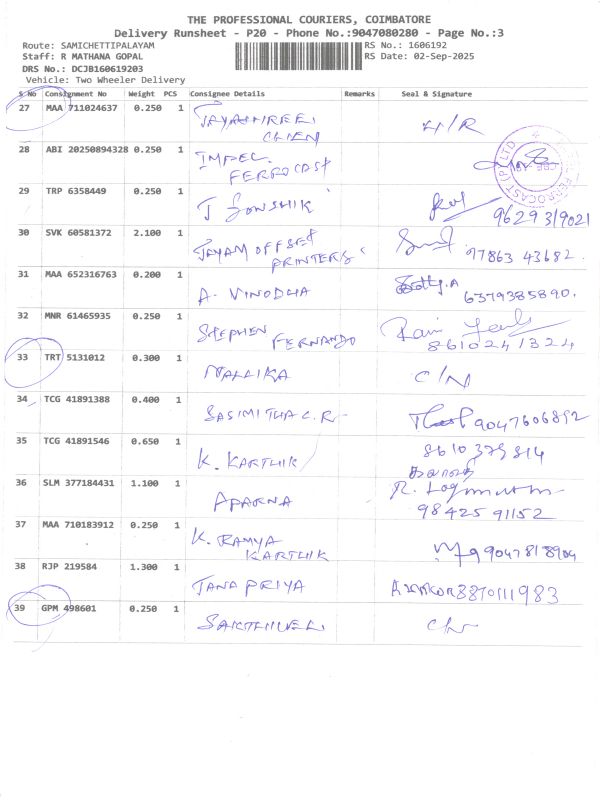 THE PROFESSIONAL COURIERS, COIMBATORE
Delivery Runsheet - P20 - Phone No.:9047080280 - Page No.:3
Route: SAMICHETTIPALAYAM
RS No.: 1606192
Staff: R MATHANA GOPAL
RS Date: 02-Sep-2025
DRS No.: DCJB160619203
Vehicle: Two Wheeler Delivery
S.No Consignment No Weight PCS Consignee Details Remarks Seal & Signature
27 MAA 711024637 0.250 1
28 ABI 20250894328 0.250 1 IMPEL
FERROCAST
29 TRP 6358449 0.250 1 J
9629319021
30 SVK 60581372 2.100 1 JAYAM OFFSET
PRINTERS 97863 43682.
31 MAA 652316763 0.200 1 A. VINODHA
6379385890.
32 MNR 61465935 0.250 1 STEPHEN
FERNANDO 8610241324
33 TRT 5131012 0.300 1 MALLIKA C/N
34 TCG 41891388 0.400 1 SASIMITHA C.R 9047606892
35 TCG 41891546 0.650 1 K. KARTHIK
36 SLM 377184431 1.100 1 APARNA
98425 91152
37 MAA 710183912 0.250 1 K. RAMYA
KARTHIK
38 RJP 219584 1.300 1 JANAPRIYA 8870111983
39 GPM 498601 0.250 1 SAKTHIVEL